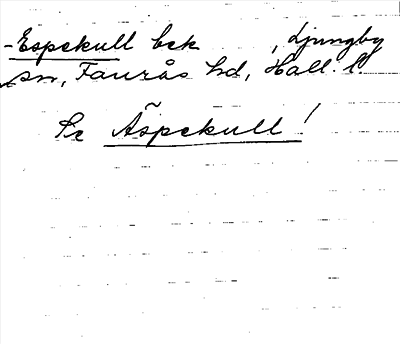 -Espekull bek , Ljungby
sn, Faurås hd, Hall. l.
Se Äspekull!